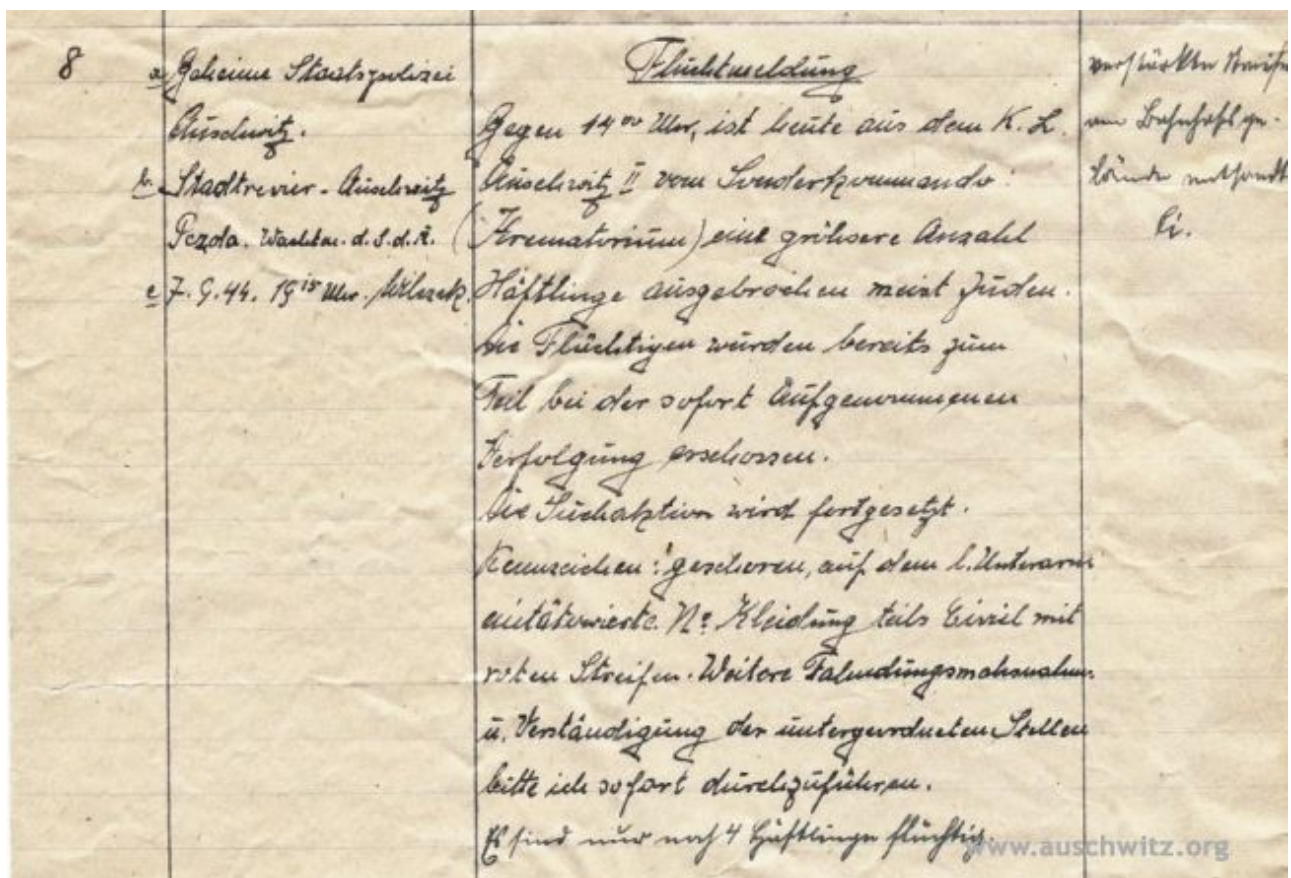 8
a. Geheime Staatspolizei
Auschwitz.
b. Stadtrevier - Auschwitz
Pezda. Wachtm. d. S. d. R.
c 7. 9. 44. 19 15 Uhr.
Fluchtmeldung
Gegen 14 00 Uhr, ist heute aus dem K. L.
Auschwitz II vom Sonderkommando
(Krematorium) eine gröhsere Anzahl
Häftlinge ausgebrochen meist Juden.
Die Flüchtigen wurden bereits zum
Teil bei der sofort Aufgenommenen
Verfolgung erschossen.
Die Suchaktion wird fortgesetzt.
Kennzeichen: geschoren, auf dem l. Unterarm
eintätowierte No Kleidung teils Civiel mit
roten Streifen. Weitere Fahndungsmahsnahm.
u. Verständigung der untergeordneten Stellen
bitte ich sofort durchzuführen.
Es sind nur noch 4 Häftlinge flüchtig.
verstärkte Streife
am Bahnhofsge-
lände entsandt
www.auschwitz.org